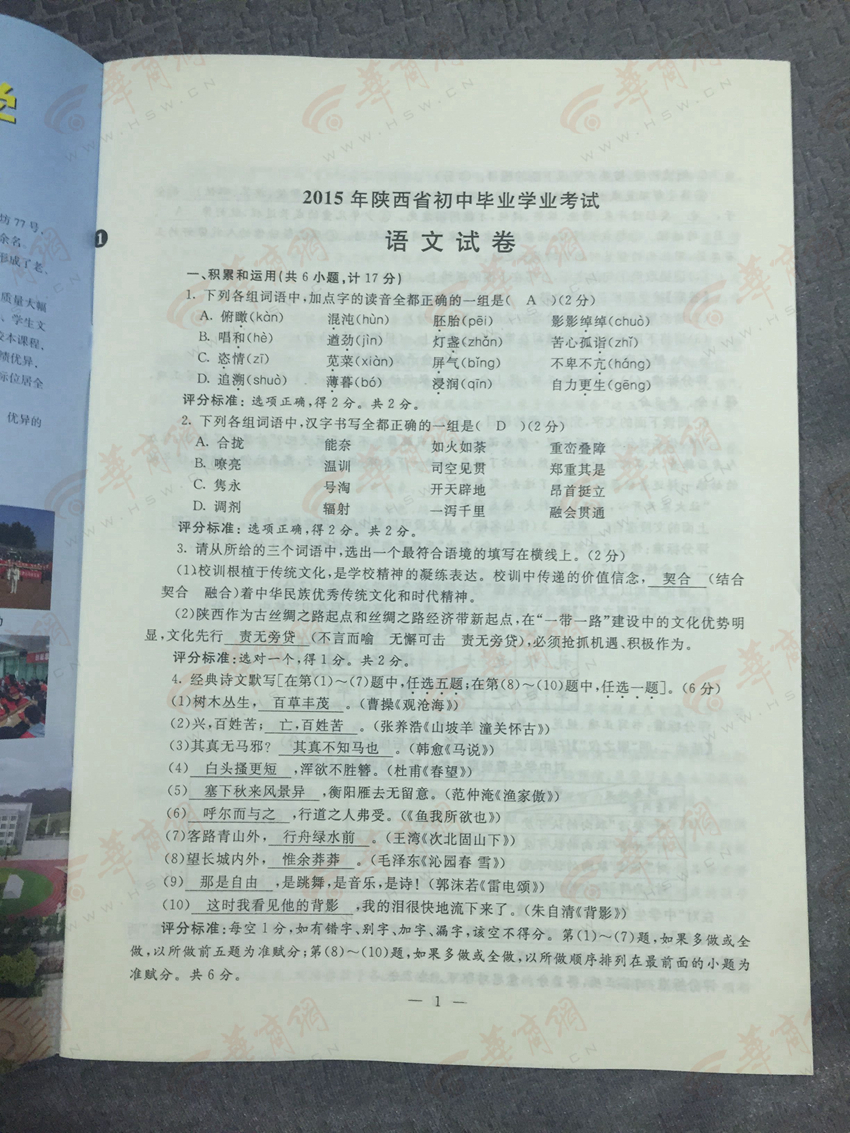 坊 77 号,
余名
形成了老、
质量大幅
、学生文
校本课程,
绩优异,
际位居全
优异的
1
華商網
WWW.HSW.CN
2015 年陕西省初中毕业学业考试
语 文 试 卷
一、积累和运用(共 6 小题,计 17 分)
1. 下列各组词语中,加点字的读音全都正确的一组是( A )(2 分)
A. 俯瞰(kàn) 混沌(hùn) 胚胎(pēi) 影影绰绰(chuò)
B. 唱和(hè) 遒劲(jìn) 灯盏(zhǎn) 苦心孤诣(zhǐ)
C. 恣情(zī) 苋菜(xiàn) 屏气(bǐng) 不卑不亢(háng)
D. 追溯(shuò) 薄暮(bó) 浸润(qīn) 自力更生(gēng)
评分标准: 选项正确,得 2 分。共 2 分。
2. 下列各组词语中,汉字书写全都正确的一组是( D )(2 分)
A. 合拢 能奈 如火如荼 重峦叠障
B. 嘹亮 温训 司空见贯 郑重其是
C. 隽永 号淘 开天辟地 昂首挺立
D. 调剂 辐射 一泻千里 融会贯通
评分标准: 选项正确,得 2 分。共 2 分。
3. 请从所给的三个词语中,选出一个最符合语境的填写在横线上。(2 分)
(1)校训根植于传统文化,是学校精神的凝练表达。校训中传递的价值信念, 契合 (结合
契合 融合)着中华民族优秀传统文化和时代精神。
(2)陕西作为古丝绸之路起点和丝绸之路经济带新起点,在“一带一路”建设中的文化优势明
显,文化先行 责无旁贷 (不言而喻 无懈可击 责无旁贷),必须抢抓机遇、积极作为。
评分标准:选对一个,得 1 分。共 2 分。
4. 经典诗文默写[在第(1)~(7)题中,任选五题;在第(8)~(10)题中,任选一题]。(6 分)
(1)树木丛生, 百草丰茂 。(曹操《观沧海》)
(2)兴,百姓苦; 亡,百姓苦 。(张养浩《山坡羊 潼关怀古》)
(3)其真无马邪? 其真不知马也 。(韩愈《马说》)
(4) 白头搔更短 ,浑欲不胜簪。(杜甫《春望》)
(5) 塞下秋来风景异 ,衡阳雁去无留意。(范仲淹《渔家傲》)
(6) 呼尔而与之 ,行道之人弗受。(《鱼我所欲也》)
(7)客路青山外, 行舟绿水前 。(王湾《次北固山下》)
(8)望长城内外, 惟余莽莽 。(毛泽东《沁园春 雪》)
(9) 那是自由 ,是跳舞,是音乐,是诗!(郭沫若《雷电颂》)
(10) 这时我看见他的背影 ,我的泪很快地流下来了。(朱自清《背影》)
评分标准:每空 1 分,如有错字、别字、加字、漏字,该空不得分。第(1)~(7)题,如果多做或全
做,以所做前五题为准赋分;第(8)~(10)题,如果多做或全做,以所做顺序排列在最前面的小题为
准赋分。共 6 分。
— 1 —